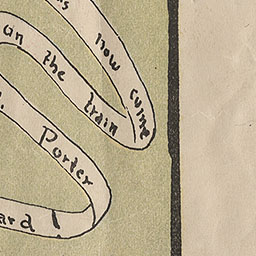 now come
on the train
Porter
ard!